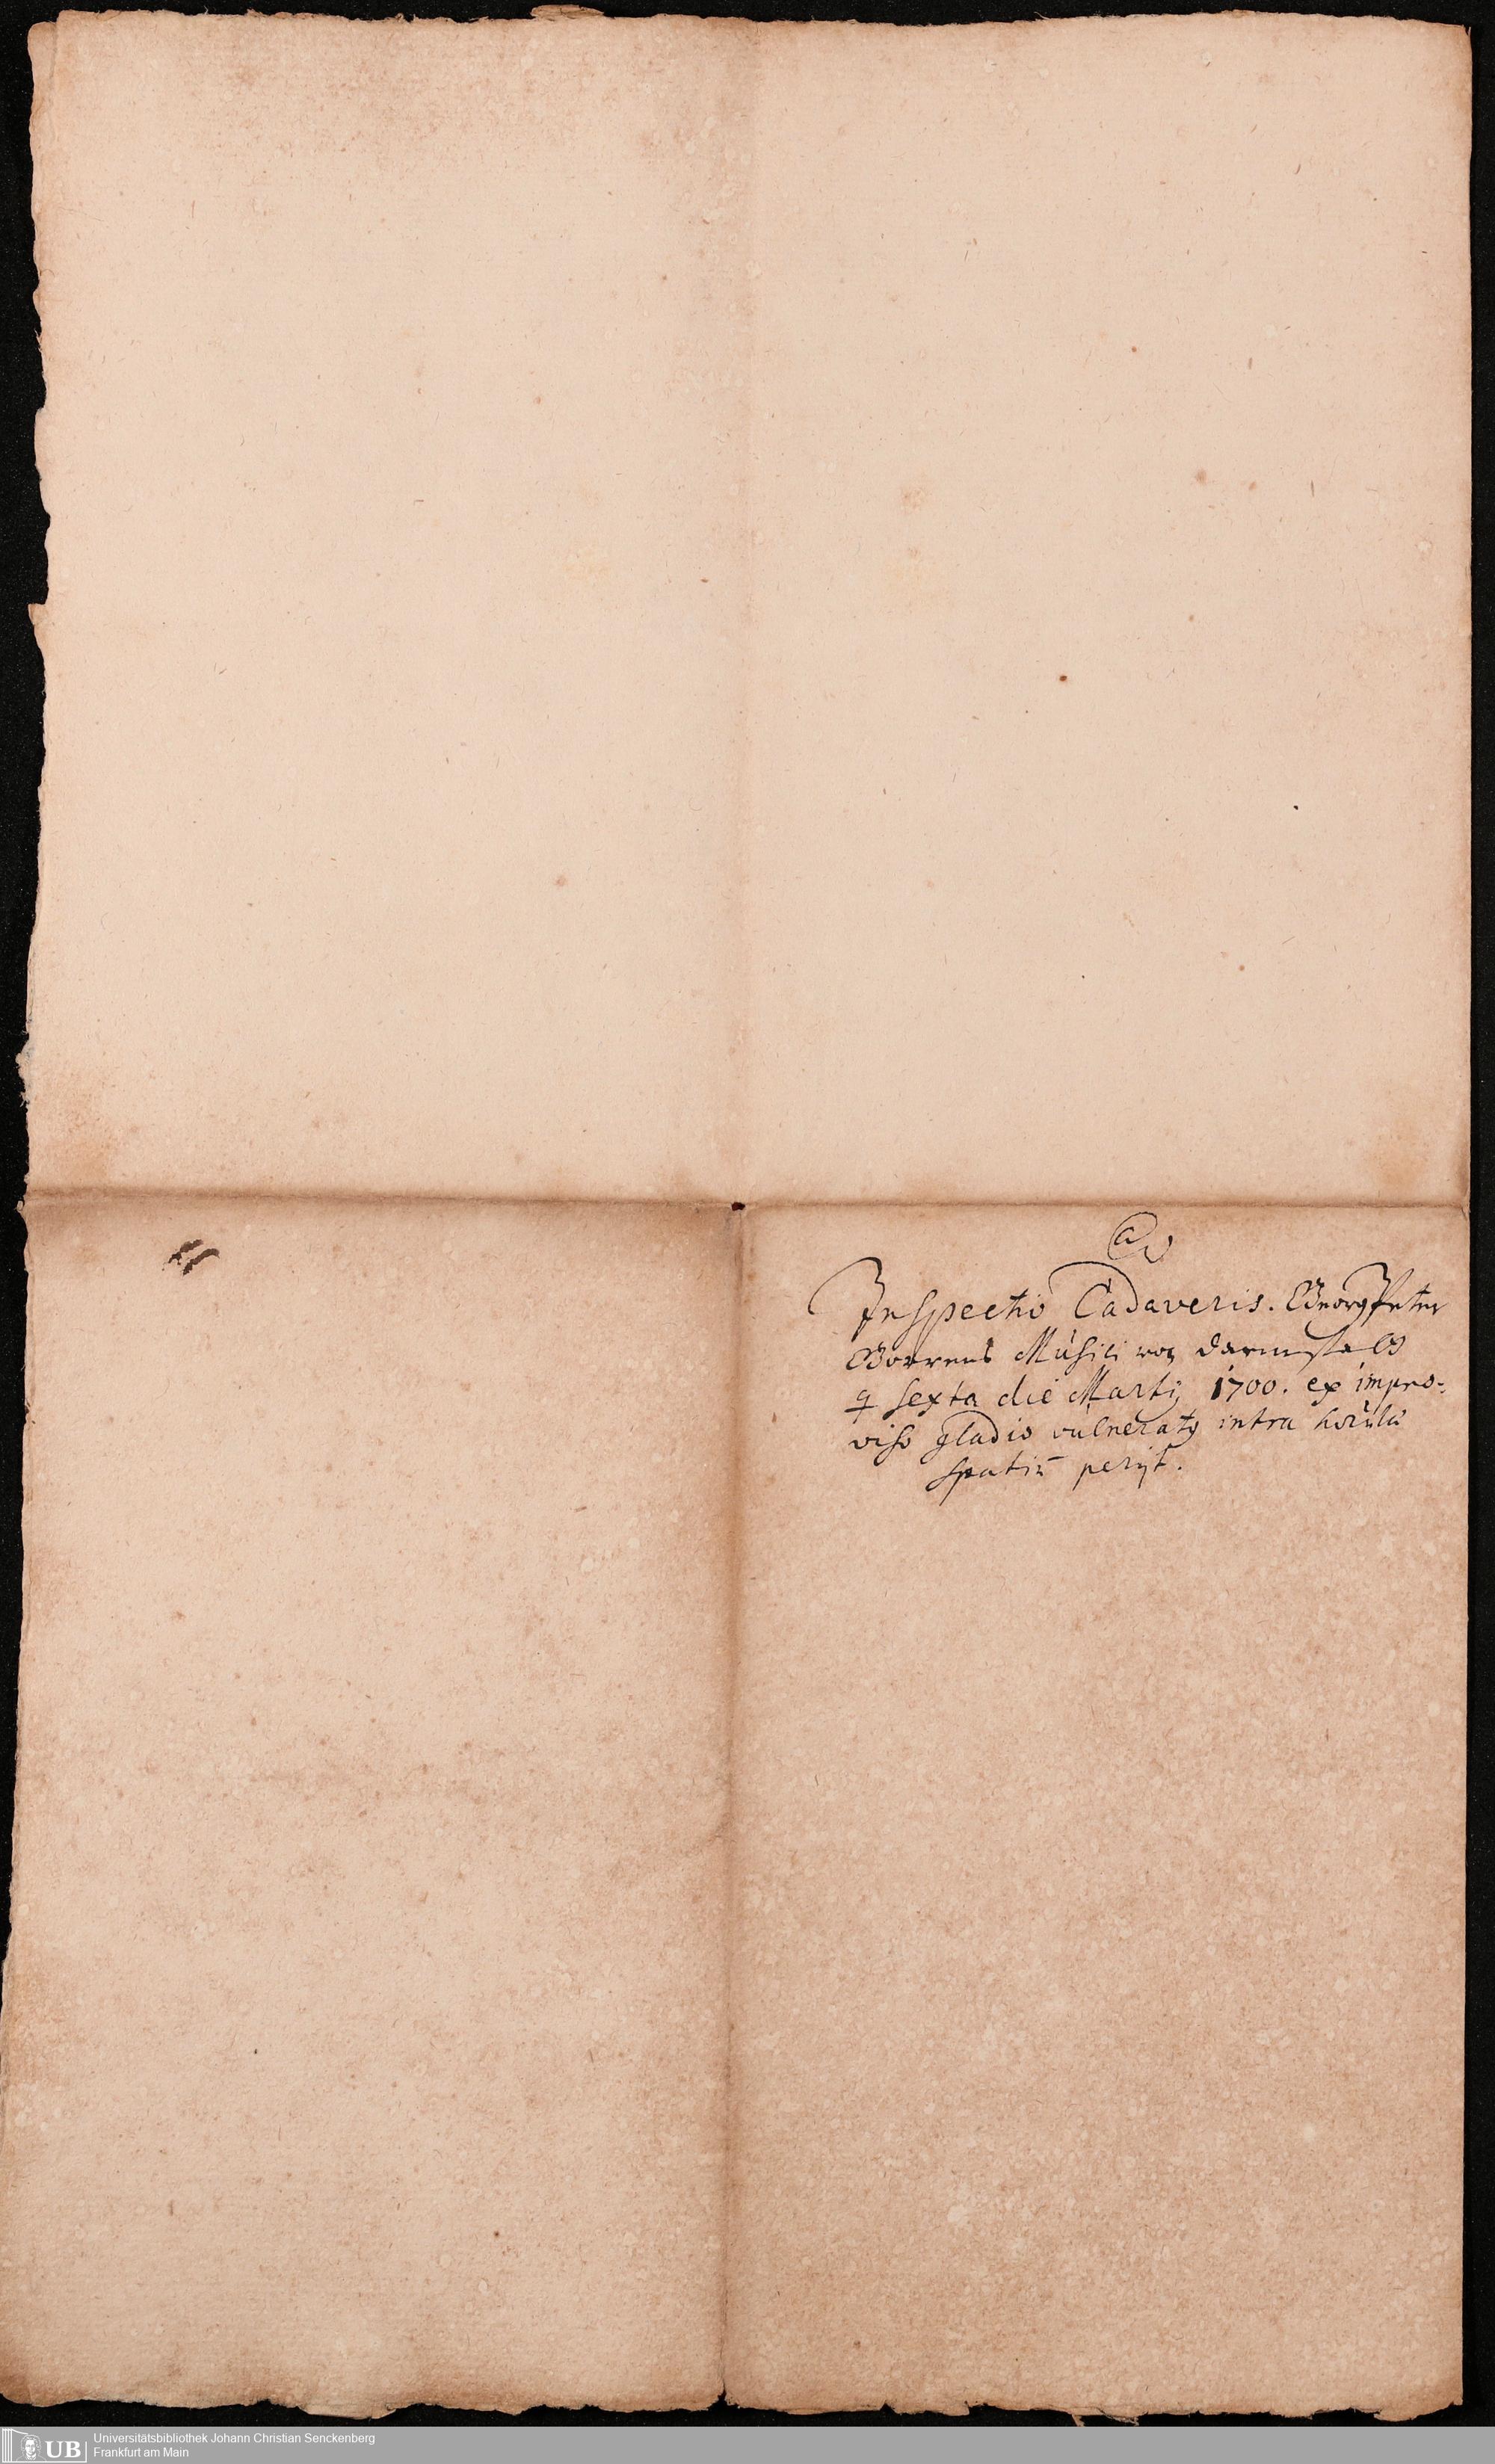 Inspectio Cadaveris. Georg Peter
Musici von Darmstatt
q sexta die Martij 1700. ex impro-
viso gladio vulneratq intra horulae
spatiū perijt.
UB
Universitätsbibliothek Johann Christian Senckenberg
Frankfurt am Main